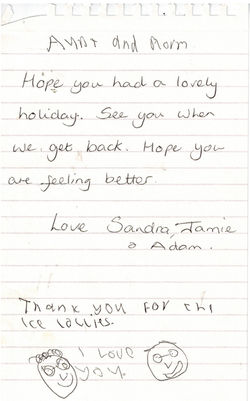 Aunt and Norm
Hope you had a lovely
holiday. See you when
we get back. Hope you
are feeling better.
Love Sandra, Jamie
& Adam.
Thank you For thi
Ice Lollies.
I Love
you.